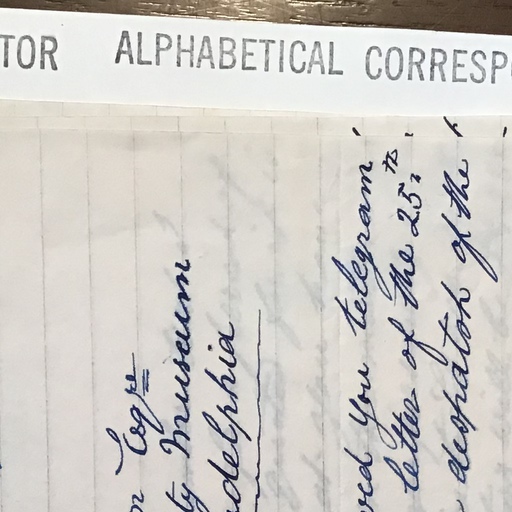 Esqre
ty Museum
delphia
ved you telegram
letter of the 25th
despatch of the
TOR ALPHABETICAL CORRESP